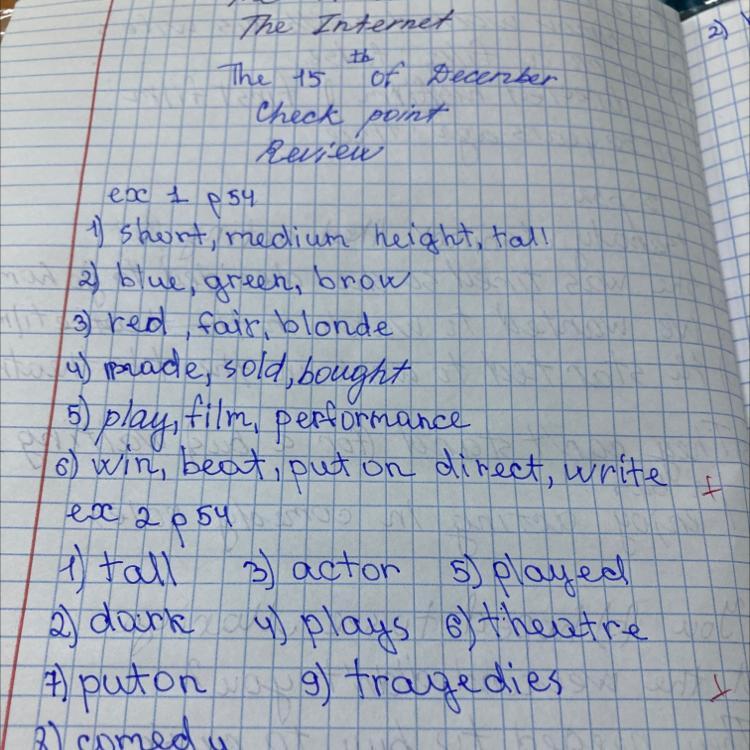 The Internet
The 15th of December
Check point
Review
ex 1 p54
1) short, medium height, tall
2) blue, green, brow
3) red, fair, blonde
4) made, sold, bought
5) play, film, performance
6) win, beat, put on direct, write +
ex 2 p54
1) tall 3) actor 5) played
2) dark 4) plays 6) theatre
7) puton 9) tragedies +
8) comedy
2)